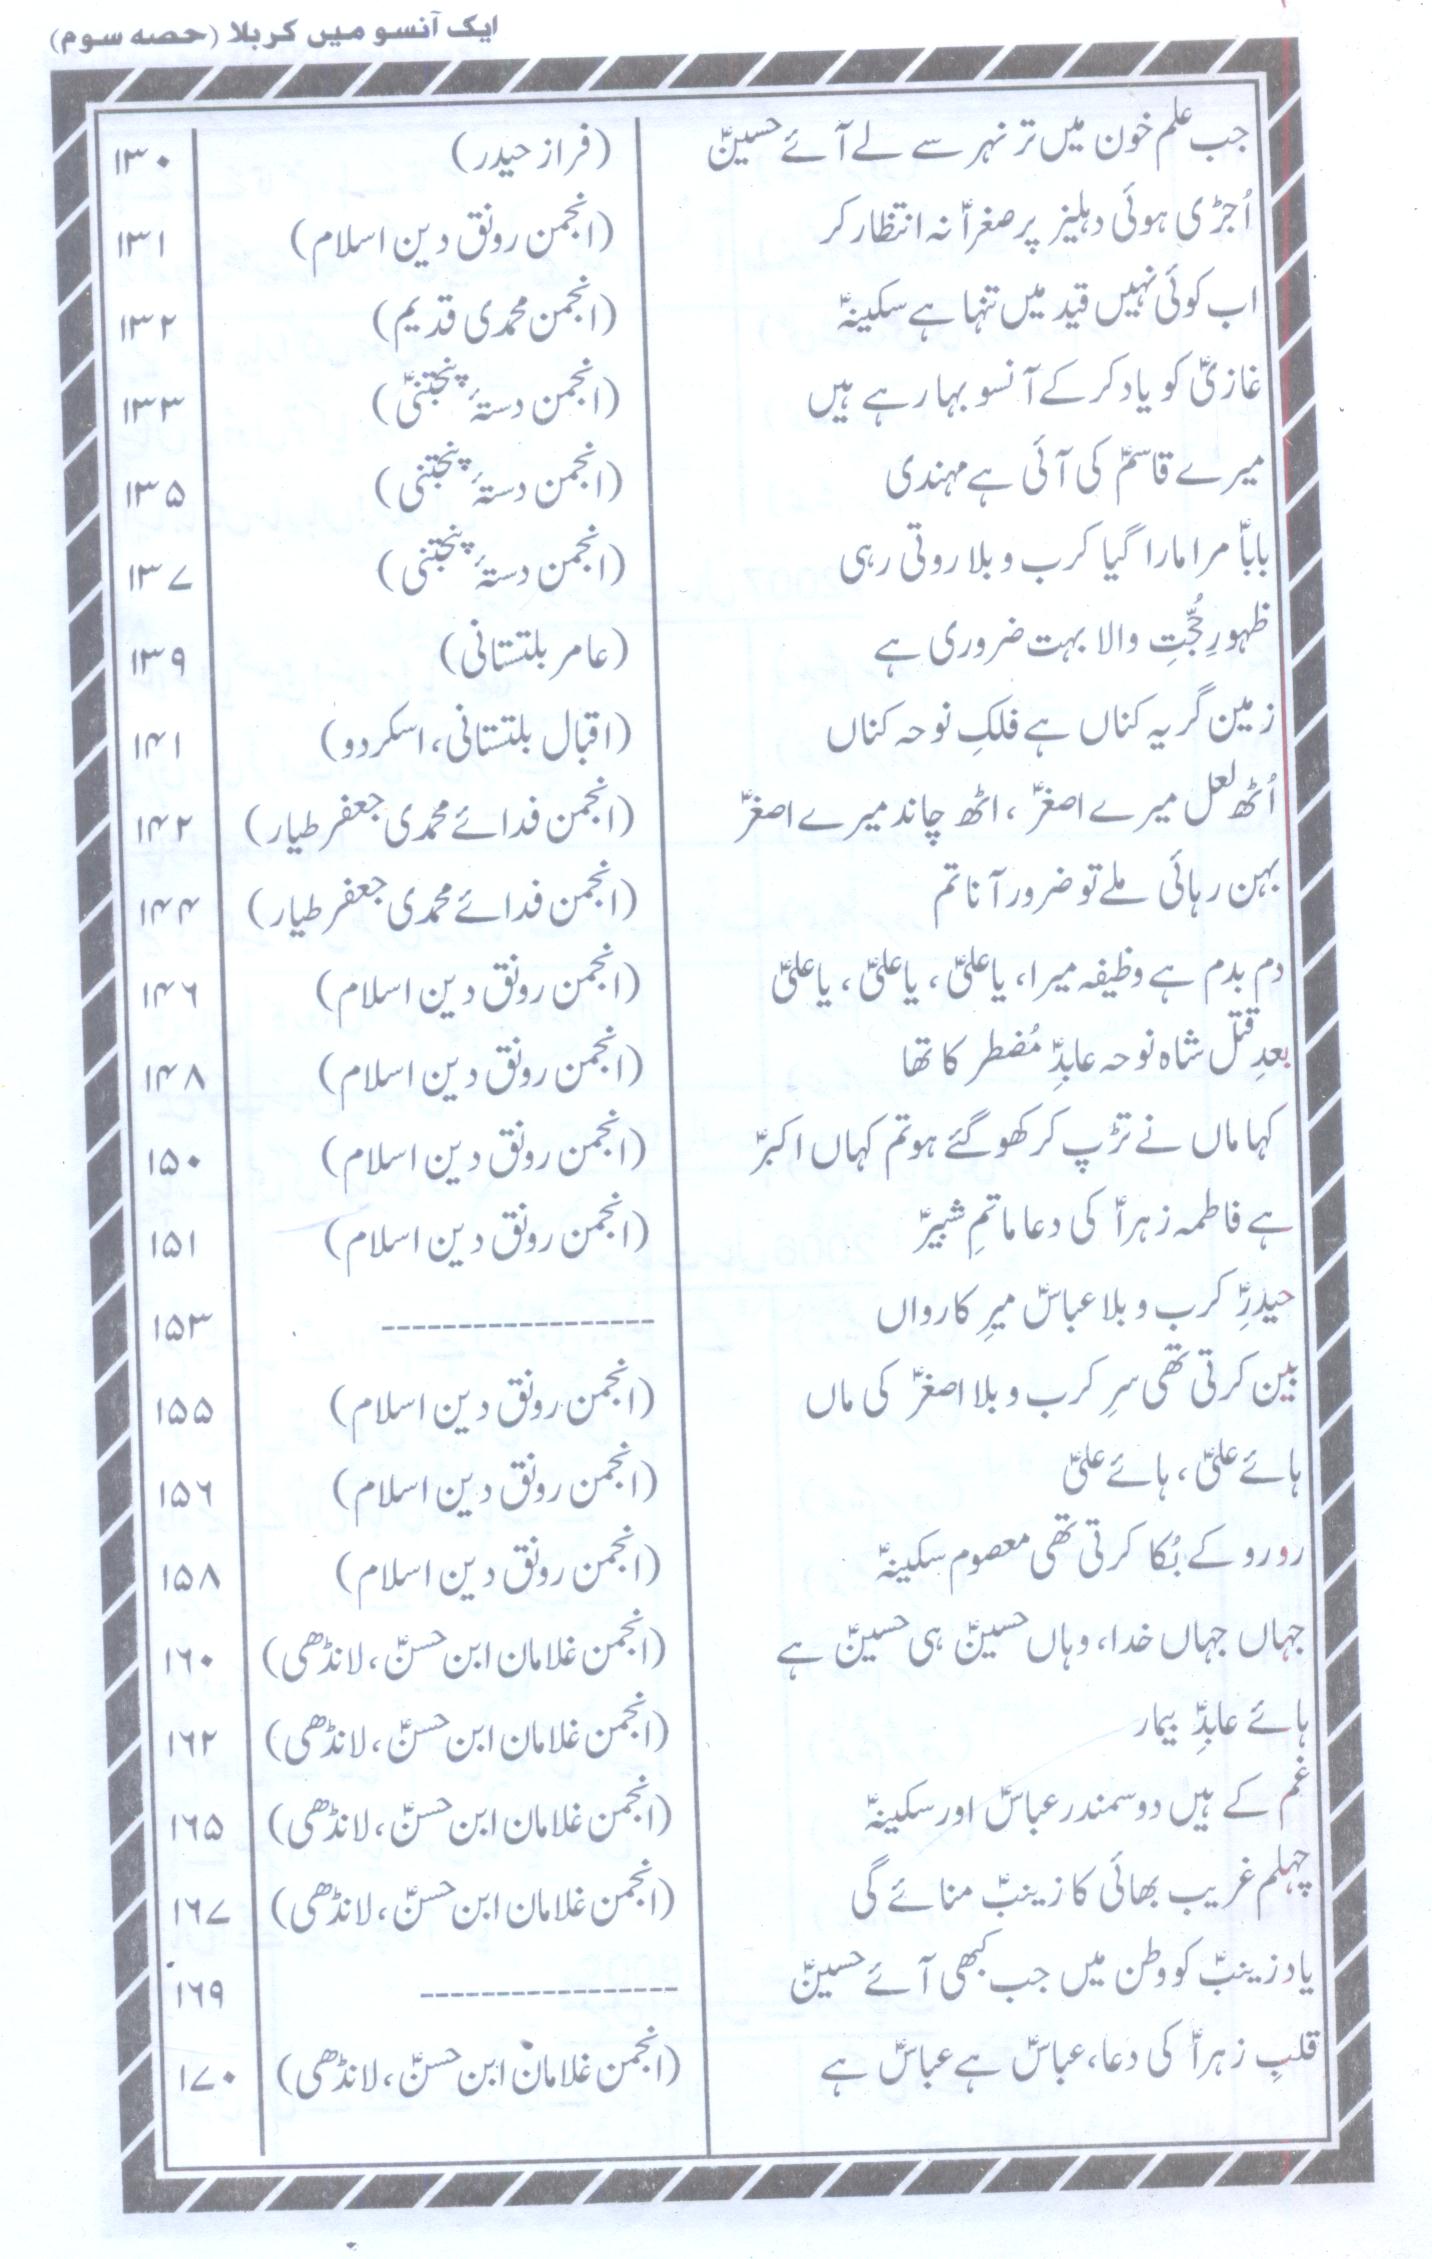 ایک آنسو میں کربلا (حصہ سوم)
جب علم خون میں تر نہر سے لے آئے حسینؑ (فراز حیدر) ۱۳۰
اُجڑی ہوئی دہلیز پر صغراؑ نہ انتظار کر (انجمن رونق دین اسلام) ۱۳۱
اب کوئی نہیں قید میں تنہا ہے سکینہؑ (انجمن محمدی قدیم) ۱۳۲
غازیؑ کو یاد کر کے آنسو بہا رہے ہیں (انجمن دستۂ پنجتنیؑ) ۱۳۳
میرے قاسمؑ کی آئی ہے مہندی (انجمن دستۂ پنجتنی) ۱۳۵
باباؑ مرا مارا گیا کرب و بلا روتی رہی (انجمن دستۂ پنجتنی) ۱۳۷
ظہورِ حُجّتِ والا بہت ضروری ہے (عامر بلتستانی) ۱۳۹
زمین گریہ کناں ہے فلکِ نوحہ کناں (اقبال بلتستانی، اسکردو) ۱۴۱
اُٹھ لعل میرے اصغرؑ ، اٹھ چاند میرے اصغرؑ (انجمن فدائے محمدی جعفر طیار) ۱۴۲
بہن رہائی ملے تو ضرور آنا تم (انجمن فدائے محمدی جعفر طیار) ۱۴۴
دم بدم ہے وظیفہ میرا، یا علیؑ، یا علیؑ، یا علیؑ (انجمن رونق دین اسلام) ۱۴۶
بعدِ قتل شاہ نوحہ عابدِؑ مُضطر کا تھا (انجمن رونق دین اسلام) ۱۴۸
کہا ماں نے تڑپ کر کھو گئے ہو تم کہاں اکبرؑ (انجمن رونق دین اسلام) ۱۵۰
ہے فاطمہ زہراؑ کی دعا ماتمِ شبیرؑ (انجمن رونق دین اسلام) ۱۵۱
حیدرِؑ کرب و بلا عباسؑ میرِ کارواں ---------------- ۱۵۳
بین کرتی تھی سرِ کرب و بلا اصغرؑ کی ماں (انجمن رونق دین اسلام) ۱۵۵
ہائے علیؑ، ہائے علیؑ (انجمن رونق دین اسلام) ۱۵۶
رو رو کے بُکا کرتی تھی معصوم سکینہؑ (انجمن رونق دین اسلام) ۱۵۸
جہاں جہاں خدا، وہاں حسینؑ ہی حسینؑ ہے (انجمن غلامان ابن حسنؑ، لانڈھی) ۱۶۰
ہائے عابدِؑ بیمار (انجمن غلامان ابن حسنؑ، لانڈھی) ۱۶۲
غم کے ہیں دو سمندر عباسؑ اور سکینہؑ (انجمن غلامان ابن حسنؑ، لانڈھی) ۱۶۵
چہلم غریب بھائی کا زینبؑ منائے گی (انجمن غلامان ابن حسنؑ، لانڈھی) ۱۶۷
یاد زینبؑ کو وطن میں جب کبھی آئے حسینؑ ---------------- ۱۶۹
قلبِ زہراؑ کی دعا، عباسؑ ہے عباسؑ ہے (انجمن غلامان ابن حسنؑ، لانڈھی) ۱۷۰